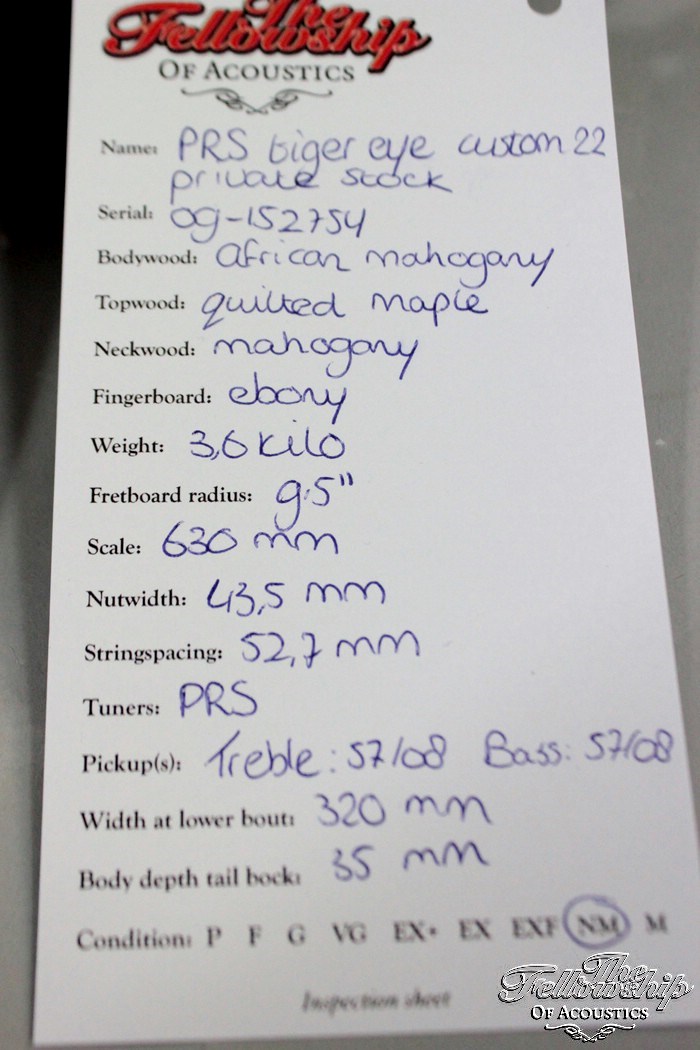 The
Fellowship
OF ACOUSTICS
Name: PRS tiger eye custom 22
private stock
Serial: 09-152754
Bodywood: african mahogany
Topwood: quilted maple
Neckwood: mahogany
Fingerboard: ebony
Weight: 3,6 kilo
Fretboard radius: 9.5"
Scale: 630 mm
Nutwidth: 43,5 mm
Stringspacing: 52,7 mm
Tuners: PRS
Pickup(s): Treble: 57/08 Bass: 57/08
Width at lower bout: 320 mm
Body depth tail bock: 35 mm
Condition: P F G VG EX+ EX EXF NM M
Inspection sheet
The
Fellowship
OF ACOUSTICS